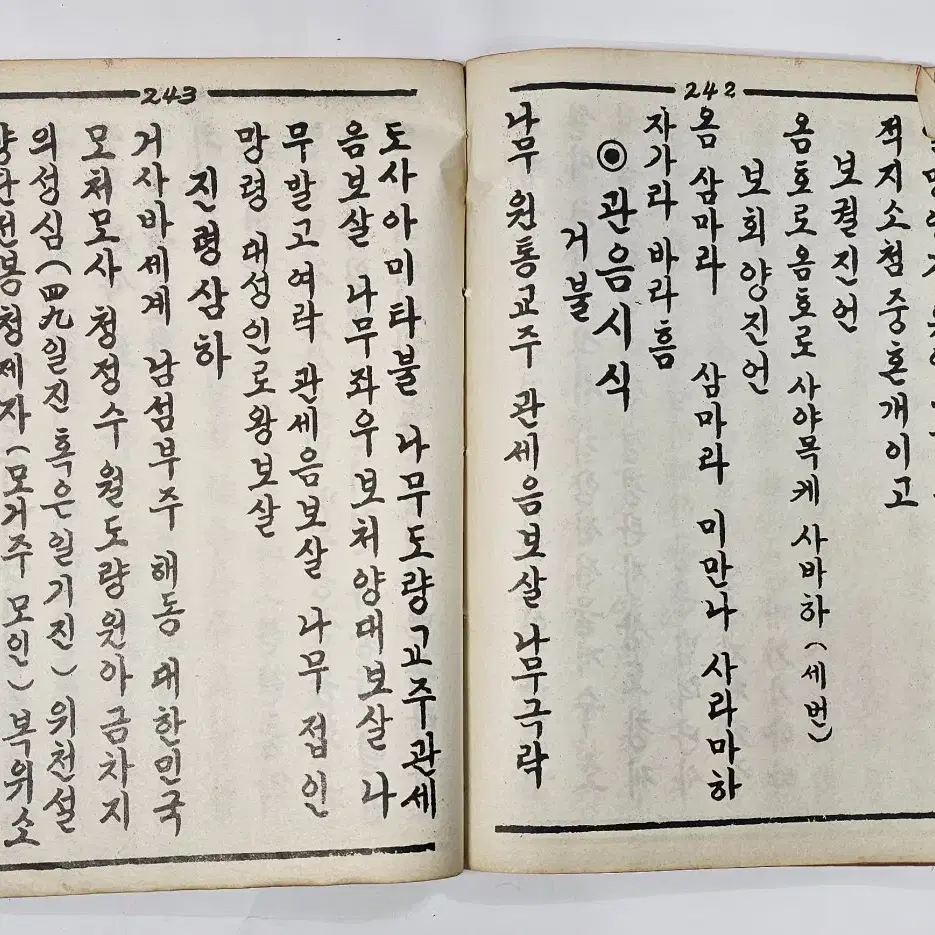 242
적지소첨중혼개이고
보궐진언
옴호로옴호로 사야목케 사바하 (세번)
보회향진언
옴 삼마라 삼마라 미만나 사라마하
자가라 바라 훔
◉관음시식
거불
나무 원통교주 관세음보살 나무극락
243
도사아미타불 나무도량교주관세
음보살 나무좌우보처양대보살 나
무발고여락 관세음보살 나무 접인
망령 대성인로왕보살
진령삼하
거사바세계 남섬부주 해동 대한민국
모처모사 청정수월도량원아금차지
의성심(四九일진 혹은일기진) 위천설
향단전봉청제자(모거주 모인) 복위소